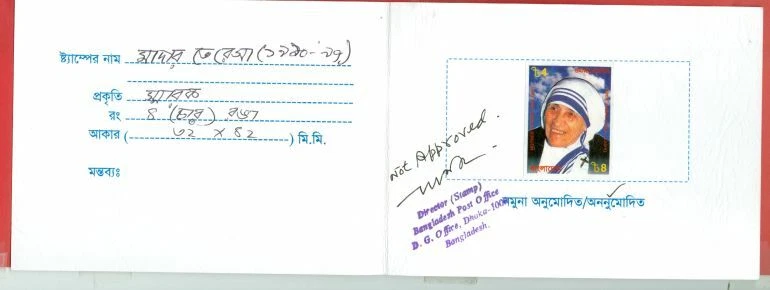 ষ্ট্যাম্পের নাম মাদার তেরেসা (১৯১০-৯৭)
প্রকৃতি স্মারক
রং ৪ (চার) রঙা
আকার ( ৩২ x ৪২ ) মি.মি.
মন্তব্যঃ
৳4
৳8
Not Approved.
Director (Stamp)
Bangladesh Post Office
D. G. Office, Dhaka-1000
Bangladesh.
নমুনা অনুমোদিত/অননুমোদিত